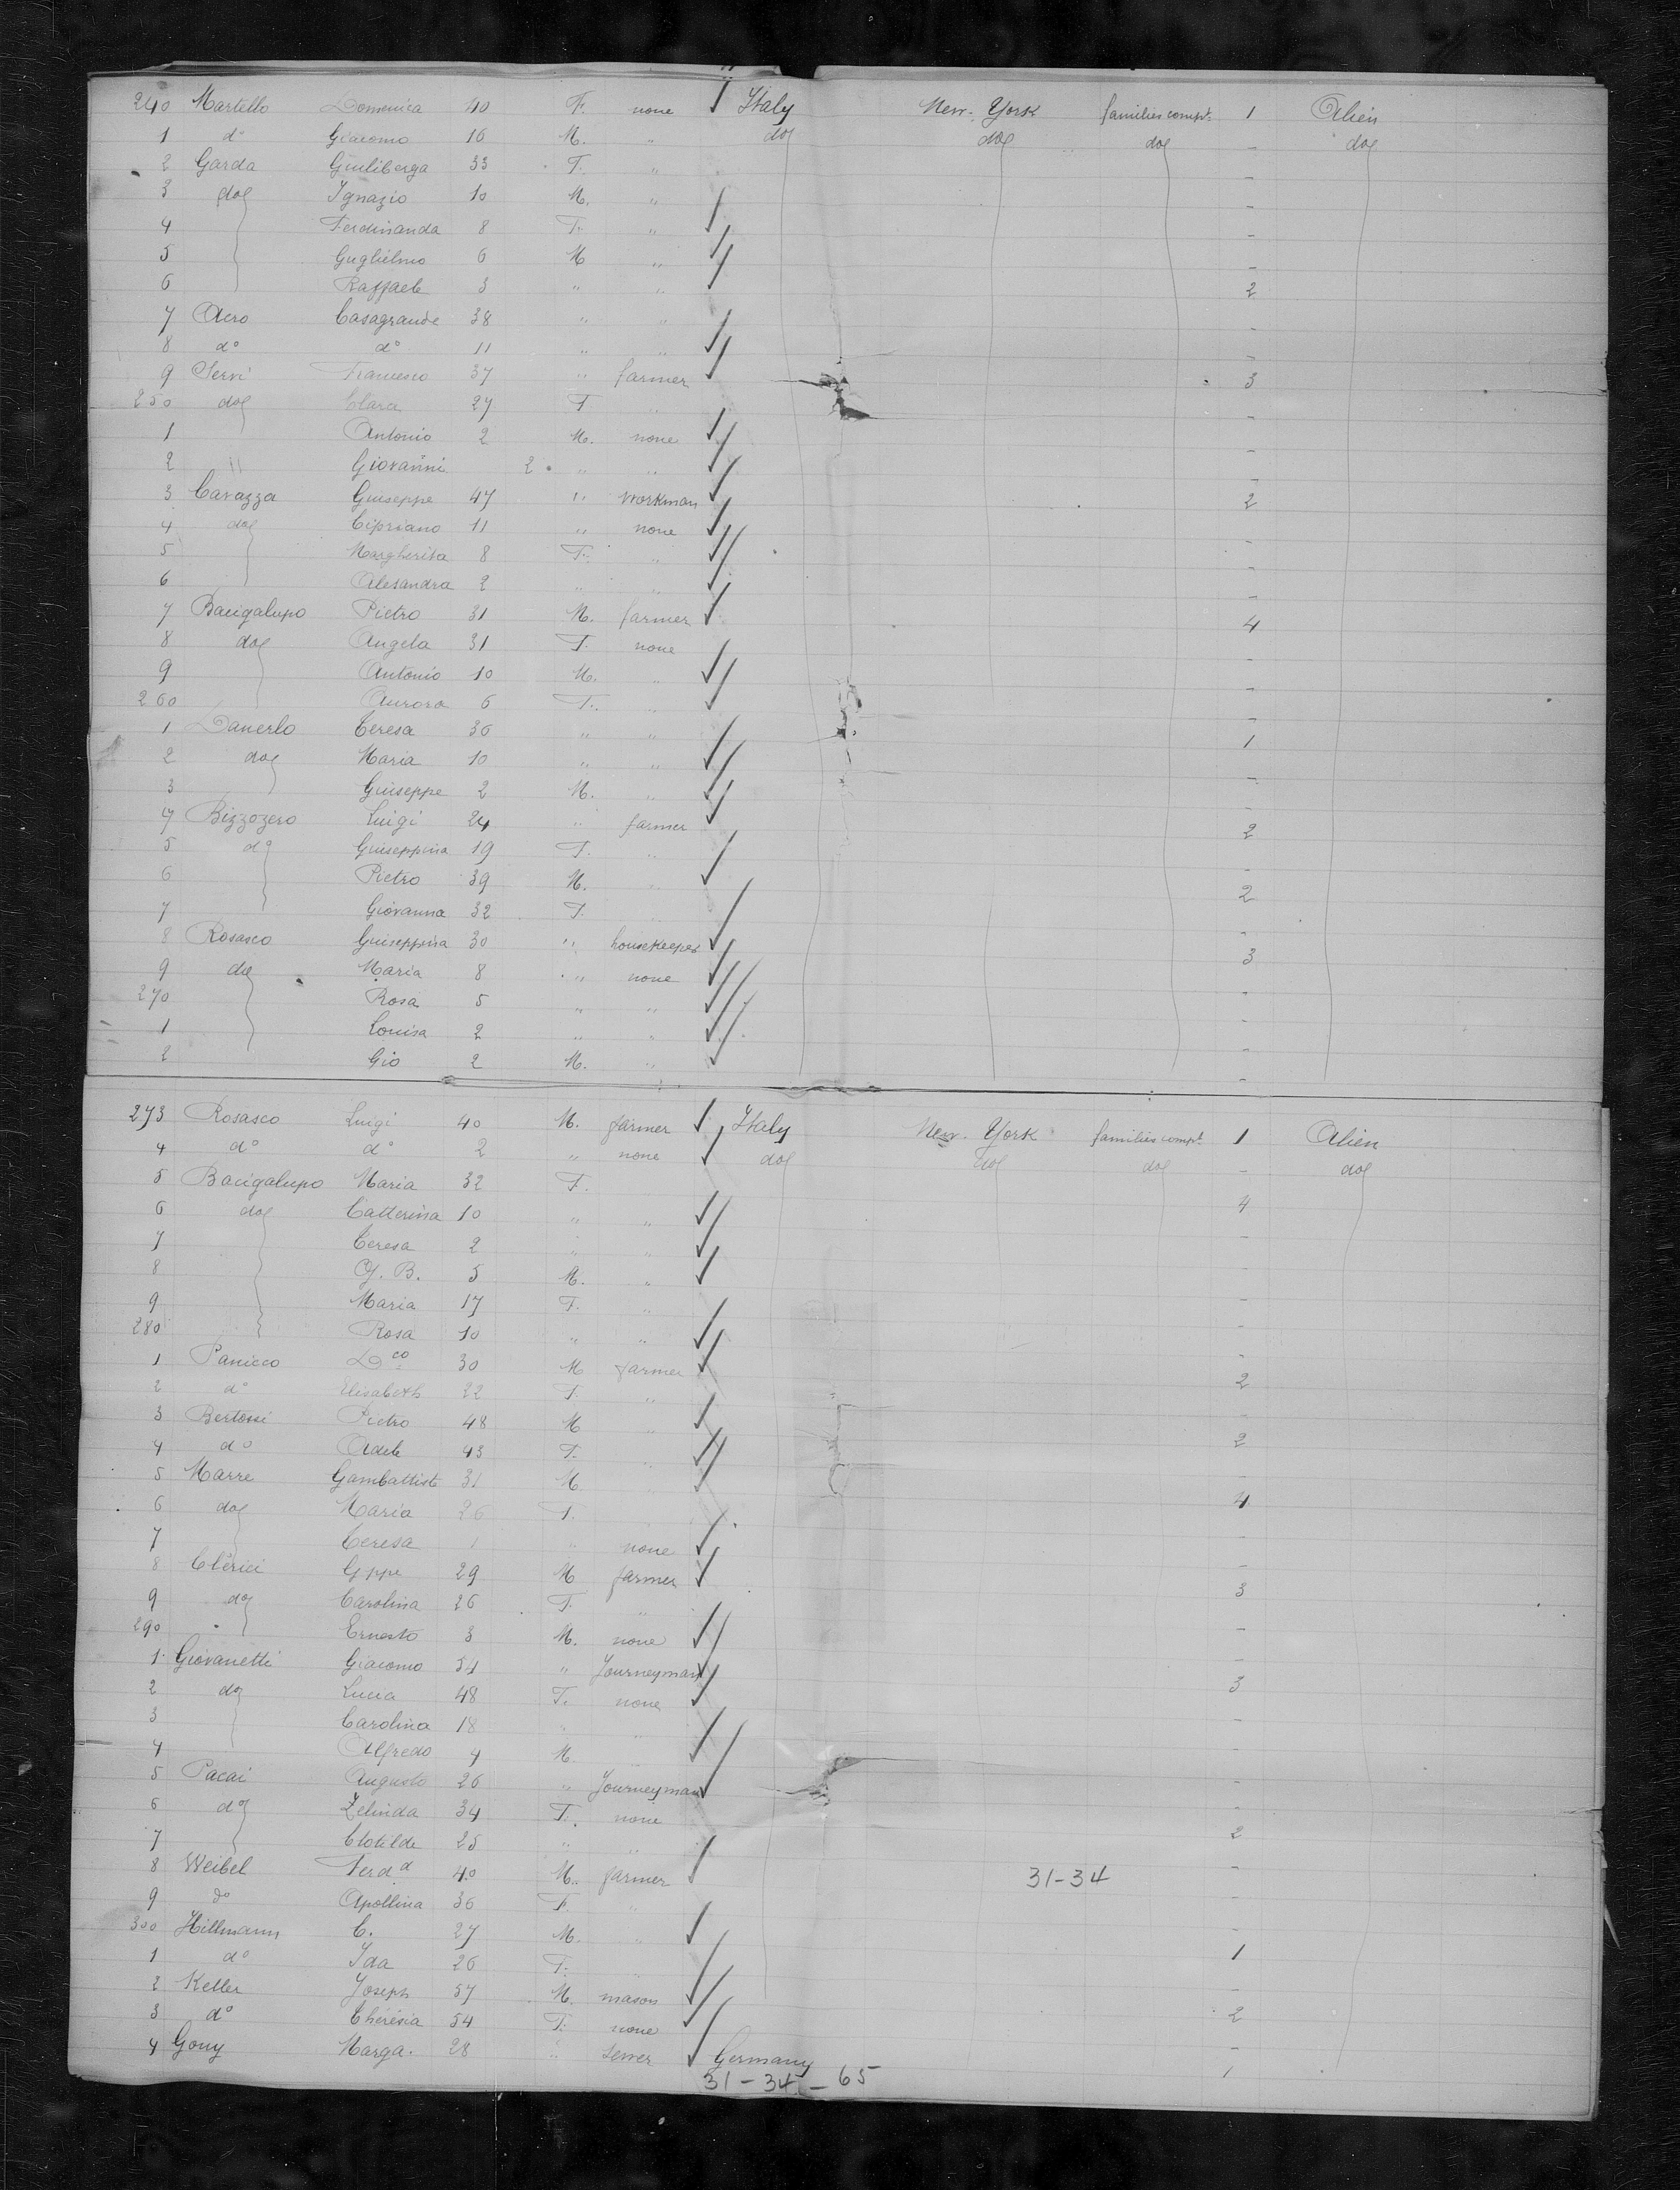 240 Martello Domenica 40 F. none Italy New-York families comp.t 1 Alien
1 d° Giacomo 16 M. " do do do - do
2 Garda Giuliberga 33 F. " -
3 do Ignazio 10 M. " -
4 Ferdinanda 8 F. " -
5 Guglielmo 6 M " -
6 Raffaele 3 " " 2
7 Acro Casagrande 38 " " -
8 d° d° 11 " " -
9 Servi Francesco 37 " farmer 3
250 do Clara 27 F " -
1 Antonio 2 M. none -
2 " Giovanni 2 " " -
3 Cavazza Giuseppe 47 " workman 2
4 do Cipriano 11 " none -
5 Margherita 8 F. " -
6 Alesandra 2 " " -
7 Bacigalupo Pietro 31 M. farmer 4
8 do Angela 31 F. none -
9 Antonio 10 M. " -
260 Aurora 6 F. " -
1 Danerlo Teresa 36 " " 1
2 do Maria 10 " " -
3 Giuseppe 2 M. " -
4 Bizzozero Luigi 24 " farmer 2
5 d° Giuseppina 19 F. " -
6 Pietro 39 M. " 2
7 Giovanna 32 F. " -
8 Rosasco Guiseppina 30 " housekeeper 3
9 do Maria 8 " none -
270 Rosa 5 " " -
1 Louisa 2 " " -
2 Gio 2 M. " -
273 Rosasco Luigi 40 M. farmer Italy New-York families comp.t 1 Alien
4 d° d° 2 " none do do do - do
5 Bacigalupo Maria 32 F. 4
6 do Catterina 10 " " -
7 Teresa 2 " " -
8 G. B. 5 M. " -
9 Maria 17 F. " -
280 Rosa 10 " " -
1 Panicco D.co 30 M farmer 2
2 d° Elisabeth 22 F. " -
3 Bertossi Pietro 48 M " 2
4 d° Adele 43 F. " -
5 Marre Gambattista 31 M 4
6 do Maria 26 F. -
7 Teresa 1 " none -
8 Clerici Gppe 29 M farmer 3
9 do Carolina 26 F. " -
290 Ernesto 3 M. none -
1 Giovanetti Giacomo 54 " Journeyman 3
2 do Lucia 48 F. none -
3 Carolina 18 " " -
4 Alfredo 4 M. " -
5 Pacai Augusto 26 " Journeyman -
6 d° Zelinda 34 F. none 2
7 Clotilde 25 " " -
8 Weibel Ferd.d 40 M. farmer 31-34 -
9 d° Apollina 36 F. " -
300 Hillmann C. 27 M. " 1
1 d° Ida 26 F. " -
2 Keller Joseph 57 M. mason 2
3 d° Theresia 54 F. none -
4 Gouy Marga. 28 " sewer Germany 1
31-34-65